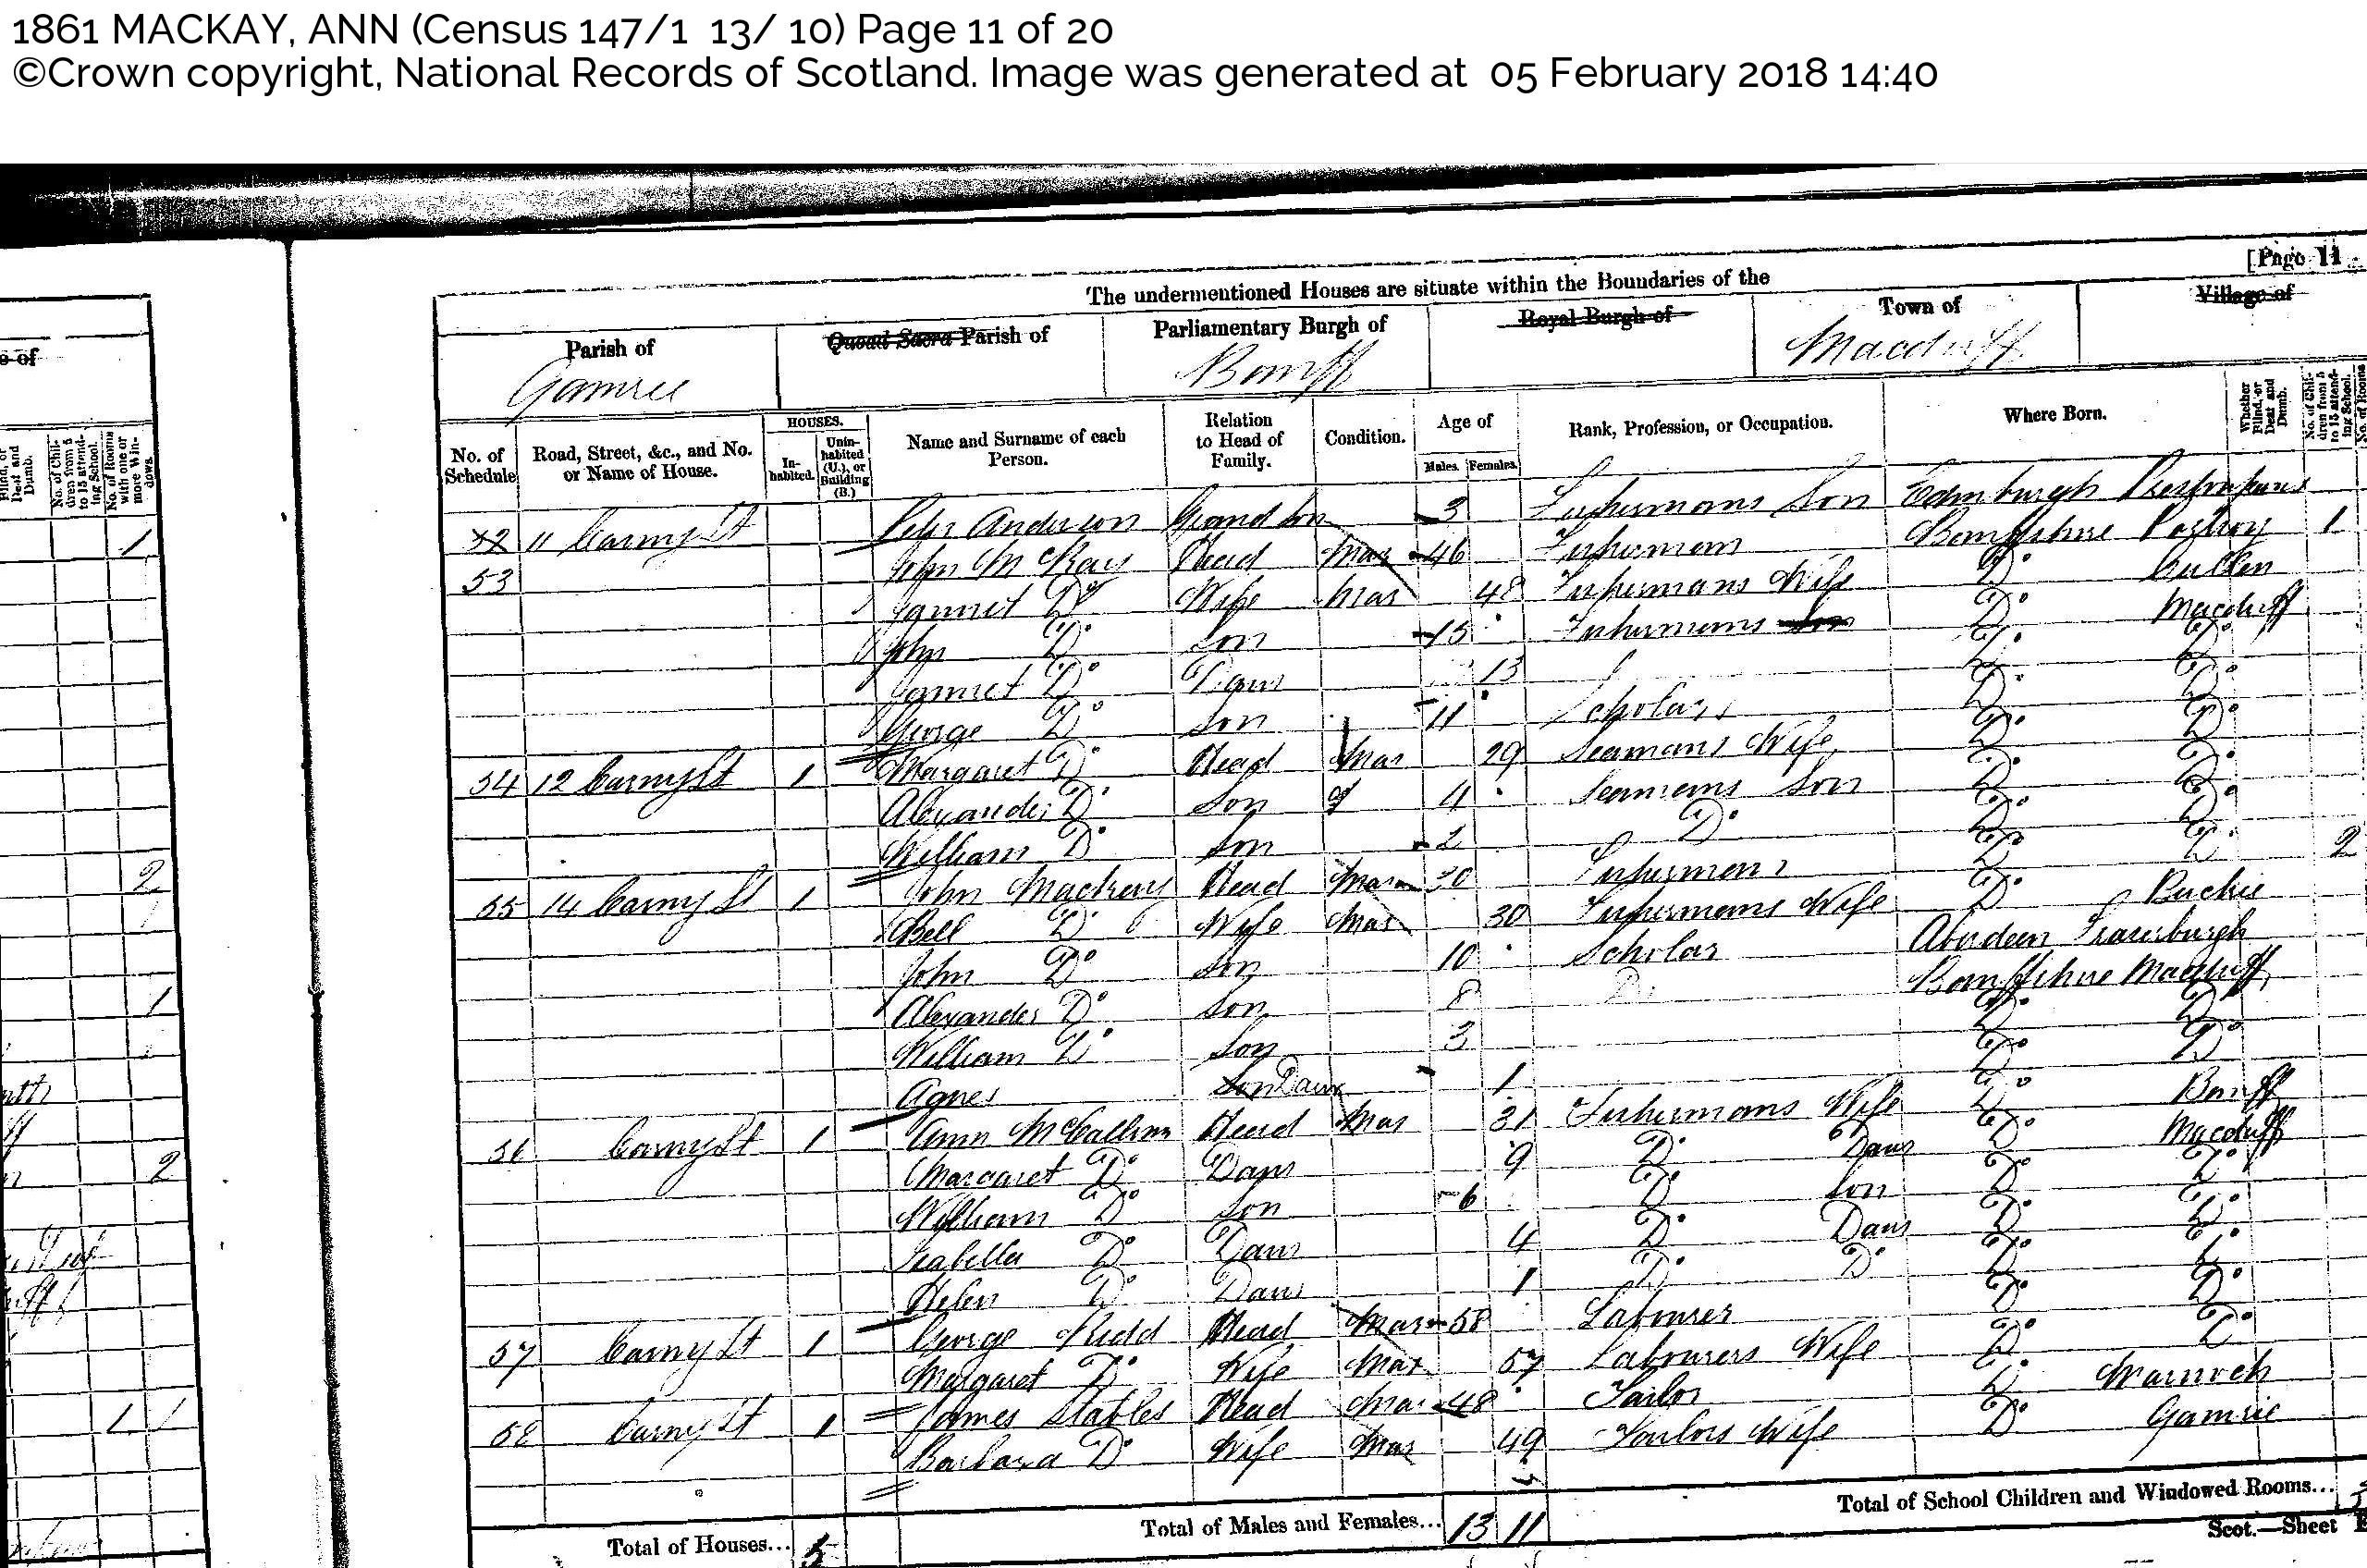 1861 MACKAY, ANN (Census 147/1 13/ 10) Page 11 of 20
©Crown copyright, National Records of Scotland. Image was generated at 05 February 2018 14:40
[Page 11
The undermentioned Houses are situate within the Boundaries of the
Parish of Quoad Sacra Parish of Parliamentary Burgh of Royal Burgh of Town of Village of
Gamrie Banff Macduff
No. of Schedule Road, Street, &c., and No. or Name of House. HOUSES. Inhabited. Uninhabited (U.), or Building (B.) Name and Surname of each Person. Relation to Head of Family. Condition. Age of Males. Females. Rank, Profession, or Occupation. Where Born. Whether Blind, or Deaf and Dumb. No. of Children from 5 to 15 attending School. No. of Rooms
52 11 Carny St Peter Anderson Grand Son 3 Fishermans Son Edinburgh Prestonpans
53 John McKay Head Mar 46 Fisherman Banffshire Portsoy 1
Jannet Do Wife Mar 48 Fishermans Wife Do Cullen
John Do Son 15 Fishermans Son Do Macduff
Jannet Do Daur 13 Do Do
George Do Son 11 Scholar Do Do
54 12 Carny St 1 Margaret Do Head Mar 29 Seamans Wife Do Do
Alexander Do Son 4 Seamans Son Do Do
William Do Son 2 Do Do Do
55 14 Carny St 1 John Head Mar 30 Fisherman Do Do 2
Bell Do Wife Mar 30 Fishermans Wife Do Buckie
John Do Son 10 Scholar Aberdeen Fraserburgh
Alexander Do Son 8 Do Banffshire Macduff
William Do Son 3 Do Do
Agnes Son Daur 1 Do Do
56 Carny St 1 Ann McCallum Head Mar 31 Fishermans Wife Do Banff
Margaret Do Daur 9 Do Daur Do Macduff
William Do Son 6 Do Son Do Do
Isabella Do Daur 4 Do Daur Do Do
Helen Do Daur 1 Do Do Do Do
57 Carny St 1 George Kidd Head Mar 58 Labourer Do Do
Margaret Do Wife Mar 57 Labourers Wife Do Do
58 Carny St 1 James Stables Head Mar 48 Tailor Do Marnoch
Barbara Do Wife Mar 49 Tailors Wife Do Gamrie
Total of Houses... 5 Total of Males and Females... 13 11 Total of School Children and Windowed Rooms...
Scot.—Sheet